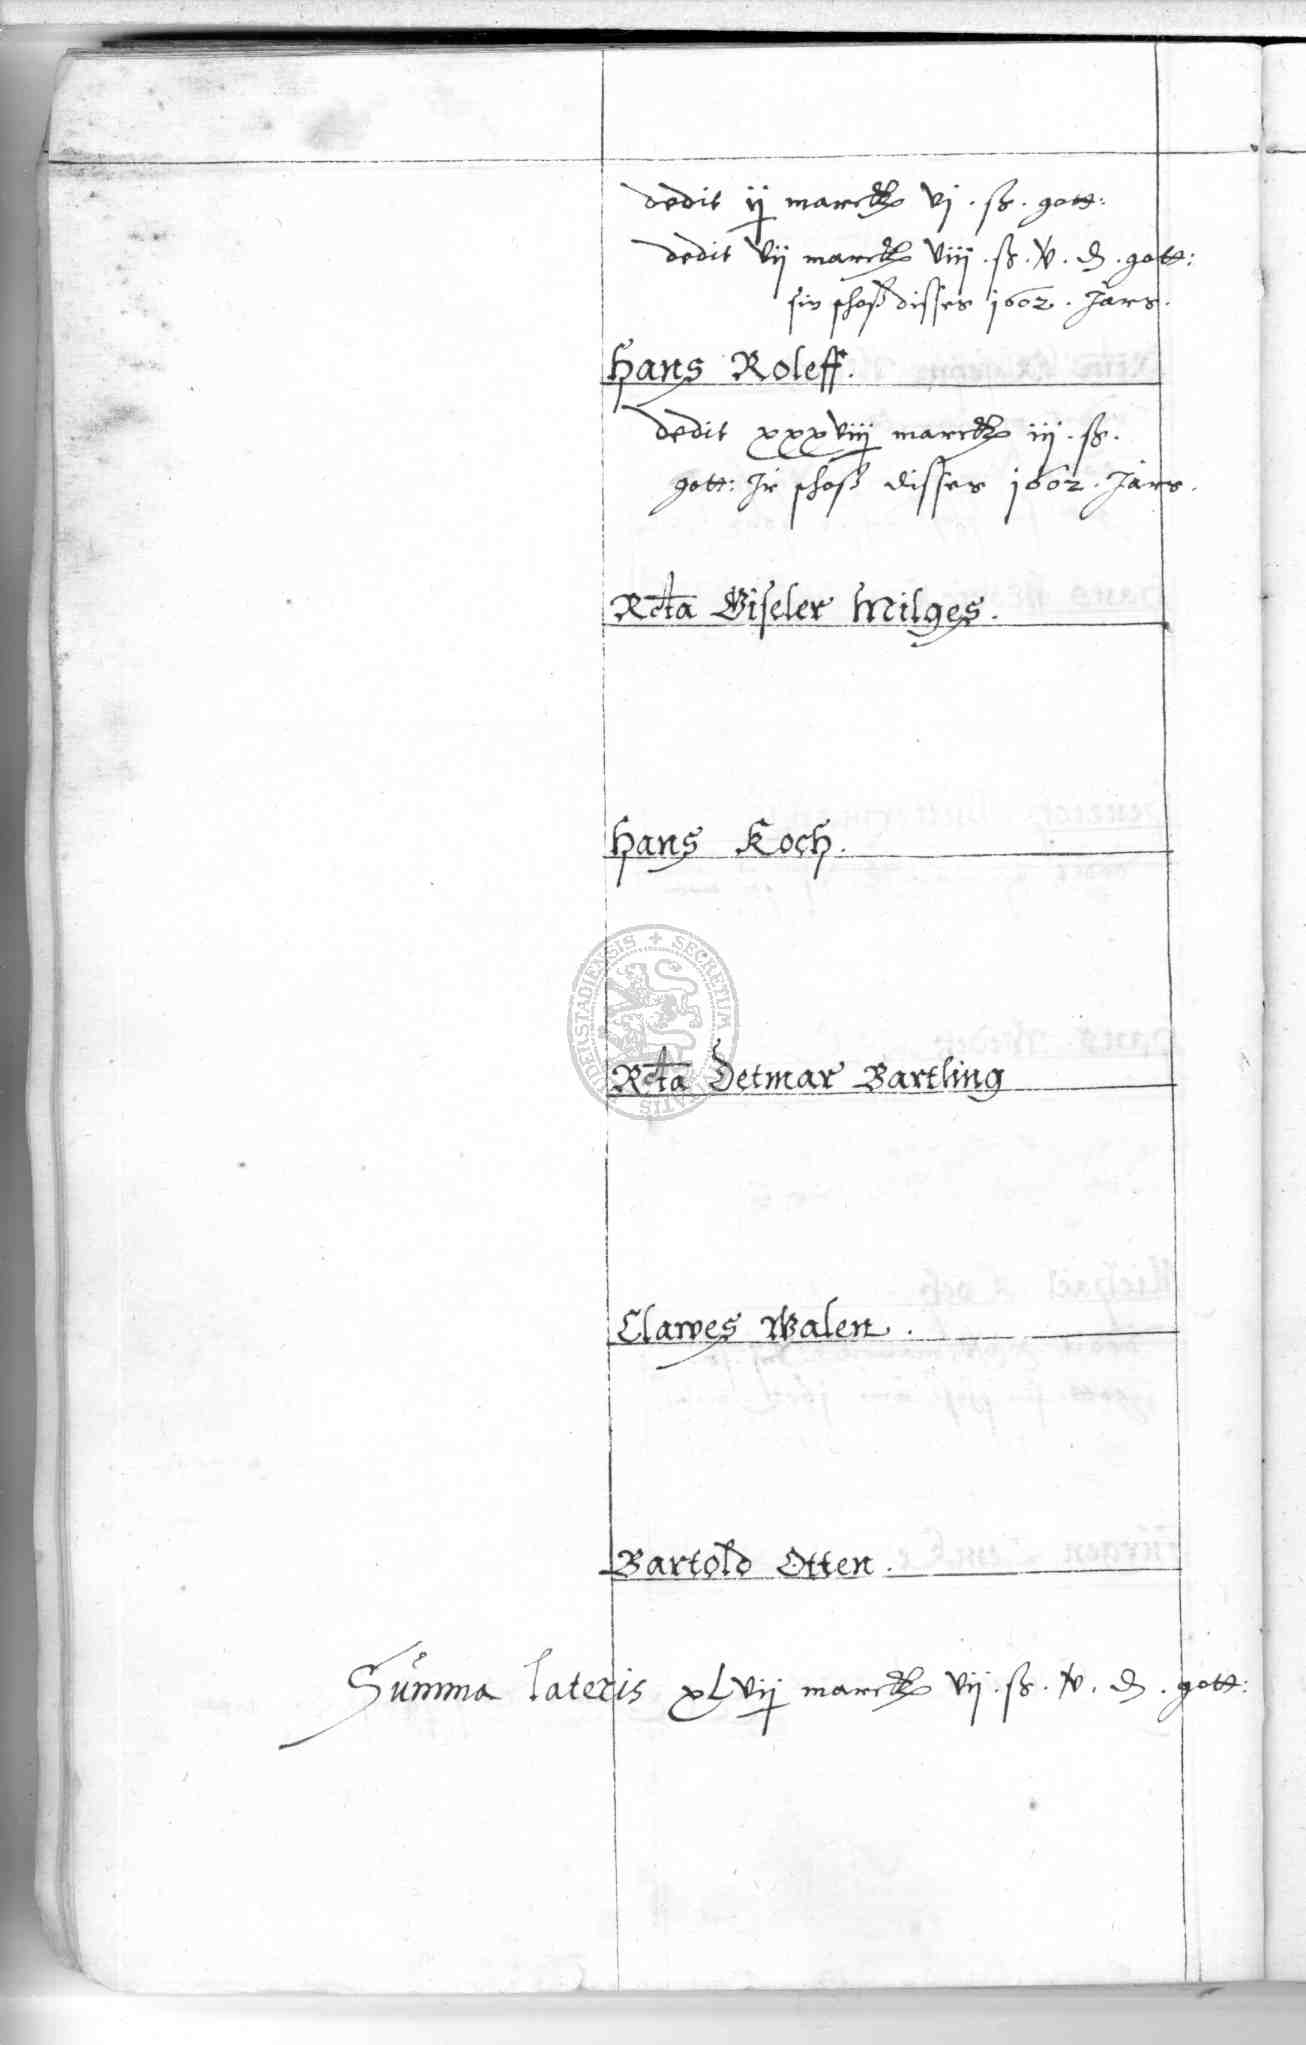 dedit ij marck vj . ß . gott:
dedit vij marck viij . ß . v . d . gott:
sin schoß disses 1602 . Jars .
Hans Roleff .
dedit xxxviij marck iij . ß .
gott: Jr schoß disses 1602 . Jars .
Rcta Giseler Milges .
Hans Koch .
SECRETUM DUDERSTADIENSIS
Rcta Detmar Bartling
Clawes Walen .
Bartold Otten .
Summa lateris xLvij marck vij . ß . v . d . gott: